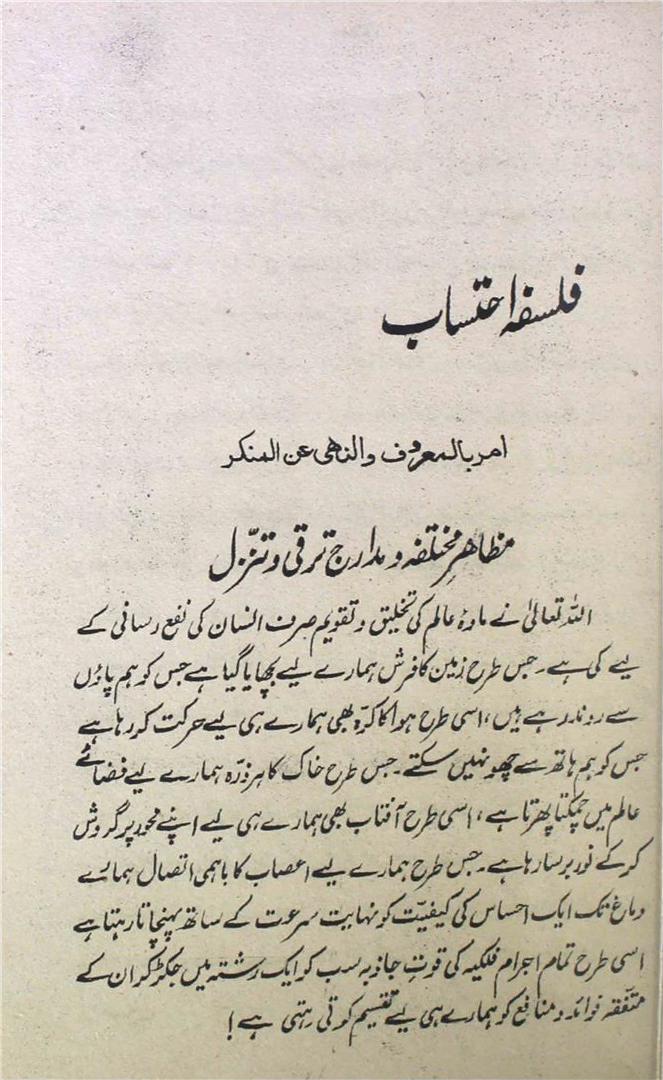 فلسفہ احتساب
امر بالمعروف والنھی عن المنکر
مظاہرِ مختلفہ و مدارج ترقی و تنزّل
اللہ تعالیٰ نے مادۂ عالم کی تخلیق و تقویم صرف انسان کی نفع رسانی کے
لیے کی ہے۔ جس طرح زمین کا فرش ہمارے لیے بچھایا گیا ہے جس کو ہم پاؤں
سے روندر ہے ہیں، اسی طرح ہوا کا کرّہ بھی ہمارے ہی لیے حرکت کر رہا ہے
جس کو ہم ہاتھ سے چھو نہیں سکتے۔ جس طرح خاک کا ہر ذرّہ ہمارے لیے فضائے
عالم میں چمکتا پھرتا ہے، اسی طرح آفتاب بھی ہمارے ہی لیے اپنے محور پر گردش
کر کے نور برسا رہا ہے۔ جس طرح ہمارے لیے اعصاب کا باہمی اتصال ہمارے
دماغ تک ایک احساس کی کیفیّت کو نہایت سرعت کے ساتھ پہنچاتا رہتا ہے
اسی طرح تمام اجرام فلکیہ کی قوتِ جاذبہ سب کو ایک رشتہ میں جکڑ کر ان کے
متّفقہ فوائد و منافع کو ہمارے ہی لیے تقسیم کرتی رہتی ہے!